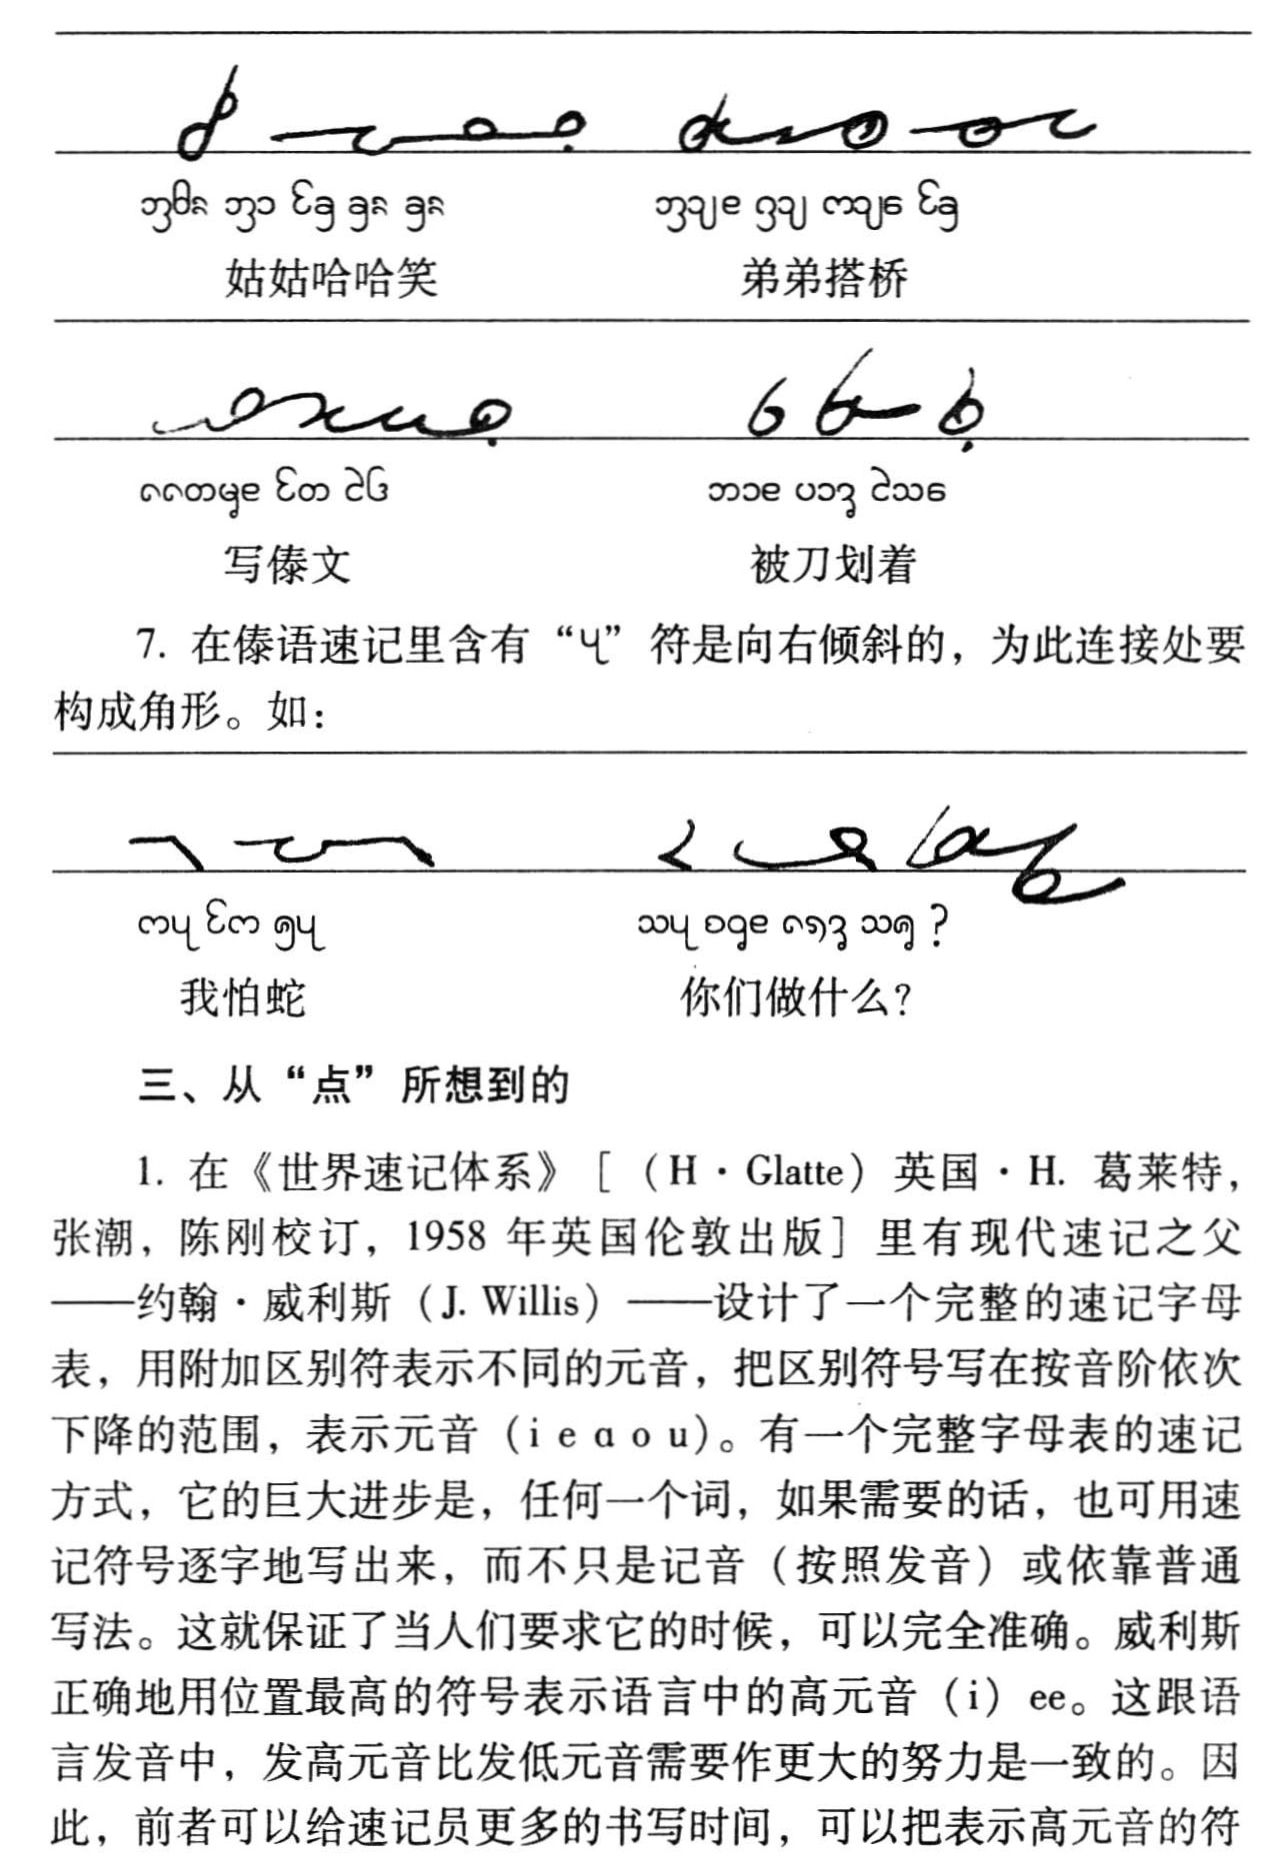 姑姑哈哈笑 弟弟搭桥
写傣文 被刀划着
7. 在傣语速记里含有“ ”符是向右倾斜的，为此连接处要
构成角形。如：
我怕蛇 你们做什么？
三、从“点”所想到的
1. 在《世界速记体系》[（H·Glatte）英国·H. 葛莱特，
张潮，陈刚校订，1958 年英国伦敦出版] 里有现代速记之父
——约翰·威利斯（J. Willis）——设计了一个完整的速记字母
表，用附加区别符表示不同的元音，把区别符号写在按音阶依次
下降的范围，表示元音（i e ɑ o u）。有一个完整字母表的速记
方式，它的巨大进步是，任何一个词，如果需要的话，也可用速
记符号逐字地写出来，而不只是记音（按照发音）或依靠普通
写法。这就保证了当人们要求它的时候，可以完全准确。威利斯
正确地用位置最高的符号表示语言中的高元音（i）ee。这跟语
言发音中，发高元音比发低元音需要作更大的努力是一致的。因
此，前者可以给速记员更多的书写时间，可以把表示高元音的符